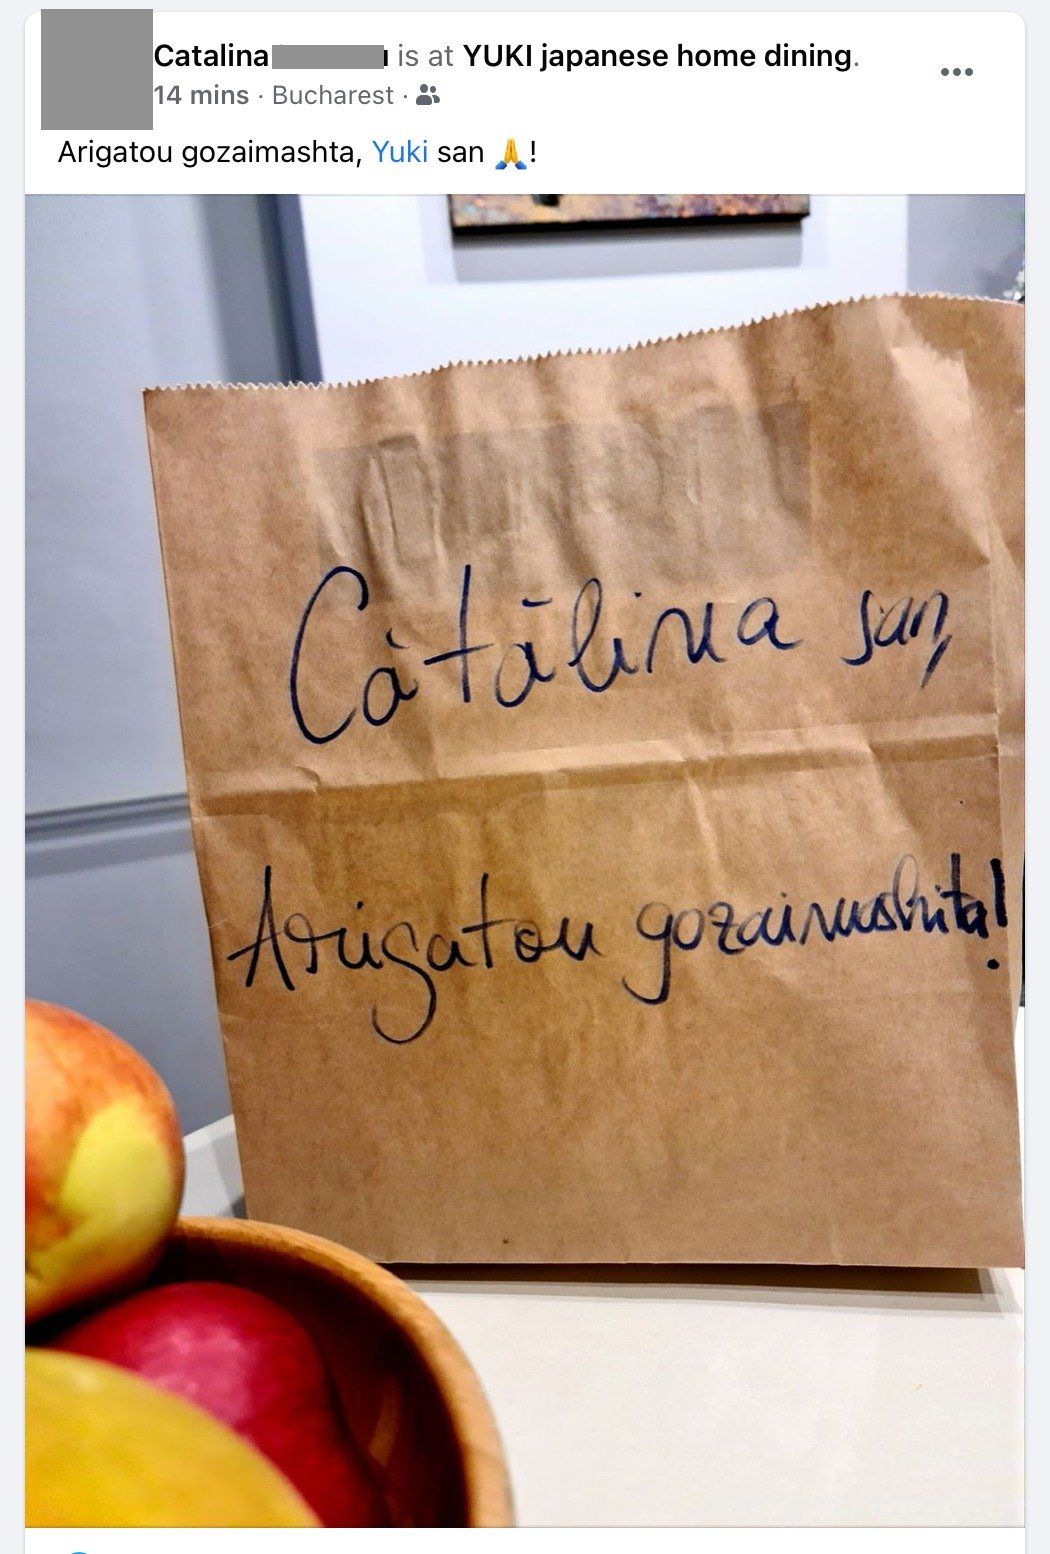 Catalina is at YUKI japanese home dining.
14 mins · Bucharest ·
Arigatou gozaimashta, Yuki san 🙏!
Cătălina san,
Arigatou gozaimashita!